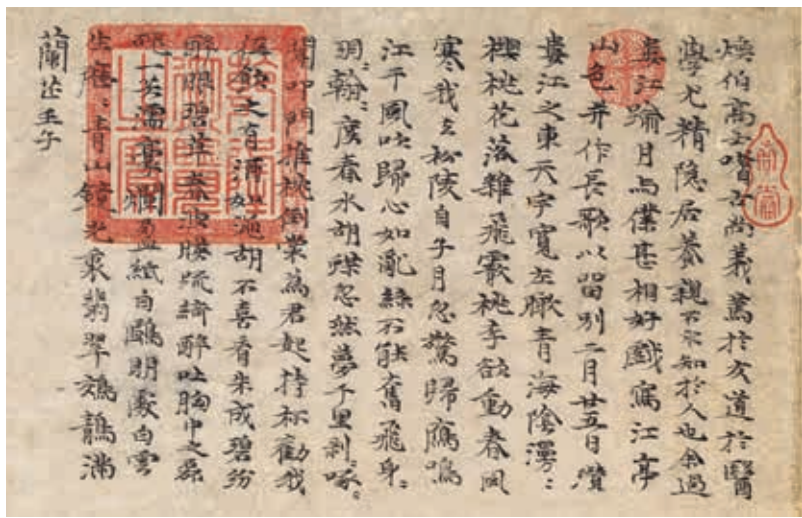 煥伯高士嗜古尚義篤於友道於醫
學尤精隱居養親不求知於人也余過
婁江踰月与僕甚相好戲寫江亭
山色并作長歌以留別二月廿五日瓚
婁江之東天宇寬左瞰青海陰漫:
櫻桃花落雜飛霰桃李欲動春風
寒我去松陵自子月忽驚歸鴈鳴
江干風吹歸心如亂絲不能奮飛身:
羽:翰:度春水胡蝶忽然夢千里剝:啄:
聞叩門推枕倒裳為君起持杯勸我
飲之有酒如澠胡不喜看朱成碧紛
醉眼碧草春波疏綺醉吐胸中之磊
磈一若濡毫爛盈紙白鷗朋處白雲
生青山鏡光裏翡翠鵁鶄滿
蘭芷壬子